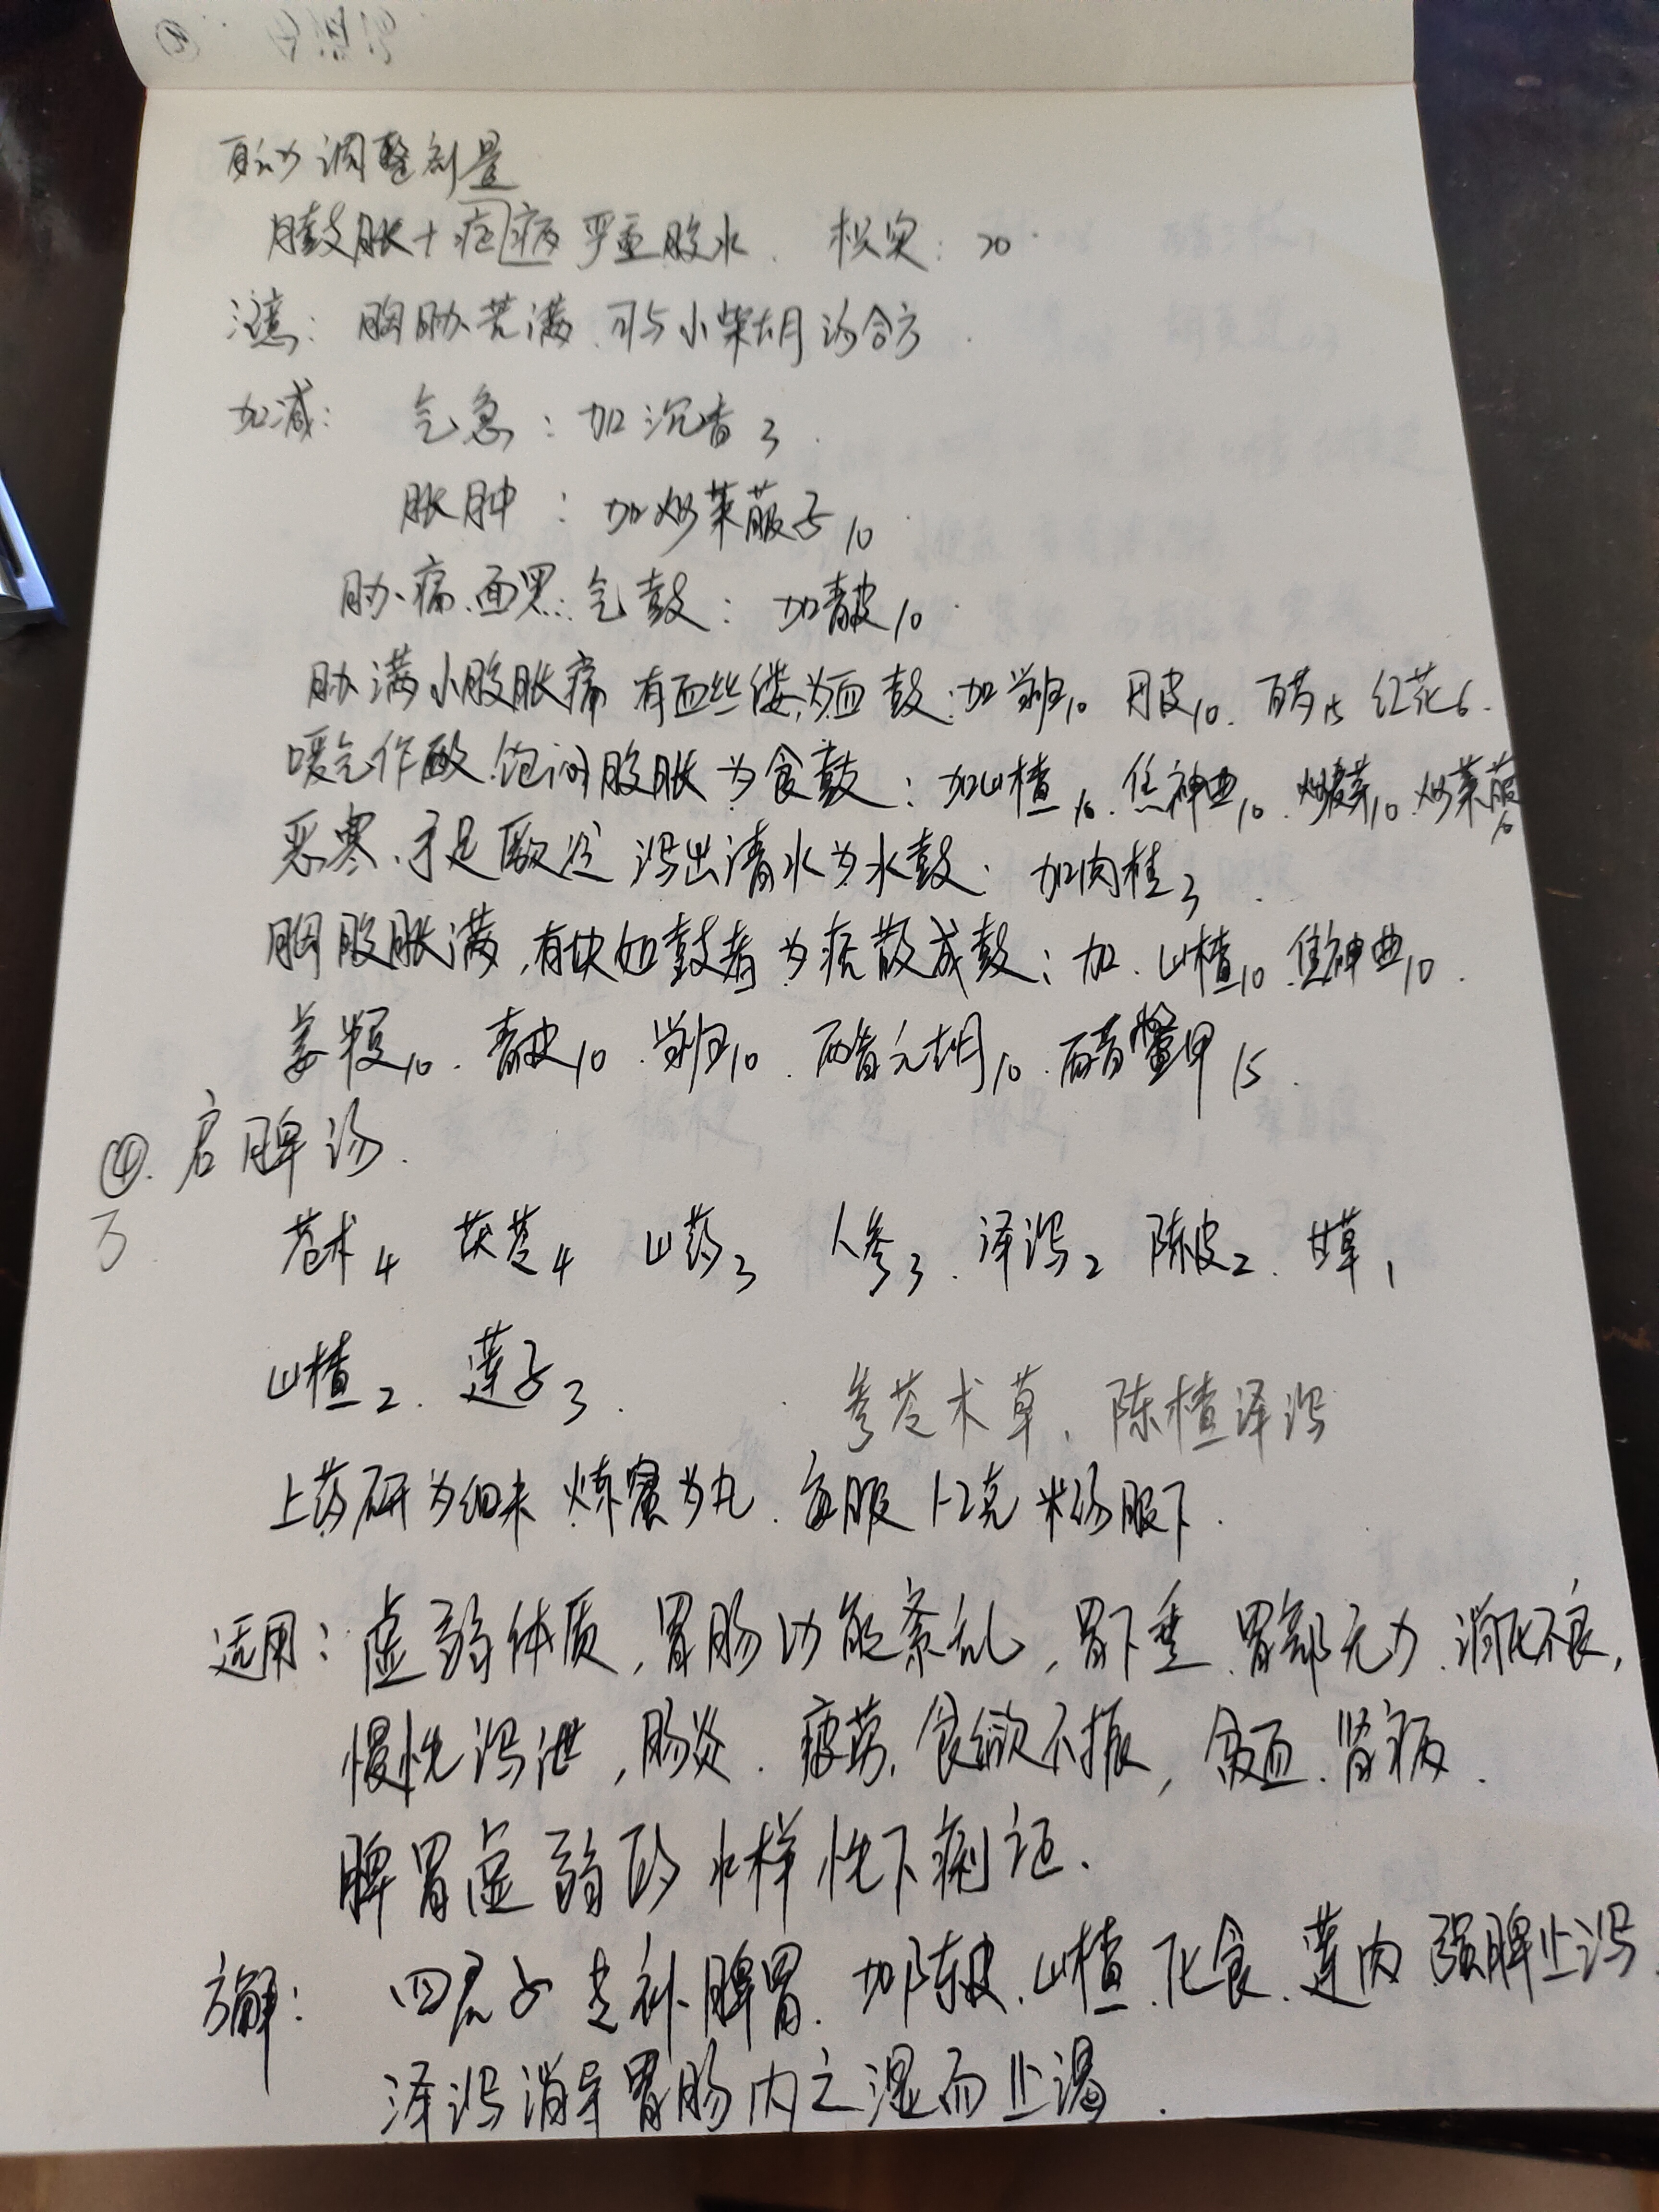 调整剂量
膨胀+ 病 严重腹水. 枳实: 20
注意: 胸胁苦满 可与小柴胡汤合方.
加减: 气急: 加沉香3.
胀肿: 加炒莱菔子10.
胁痛、面黑: 气鼓: 加青皮10.
胁满小腹胀痛 有血丝缕为血鼓: 加当归10 丹皮10. 白芍15 红花6.
嗳气作酸、饱闷腹胀为食鼓: 加山楂10. 焦神曲10. 炒麦芽10. 炒莱菔10
恶寒、手足厥冷 泻出清水为水鼓. 加肉桂3.
胸腹胀满, 有块如鼓者为痞散成鼓; 加. 山楂10 焦神曲10.
姜半夏10. 青皮10. 当归10. 醋元胡10. 醋鳖甲15.
④. 启脾汤.
3
苍术4 茯苓4 山药3 人参3. 泽泻2 陈皮2. 甘草1
山楂2. 莲子3.
参苓术草, 陈楂泽泻
上药研为细末 炼蜜为丸. 每服1-2克 米汤服下.
适用: 虚弱体质, 胃肠功能紊乱, 胃下垂、胃部无力、消化不良,
慢性泻泄, 肠炎. 疲劳, 食欲不振, 贫血、肾病.
脾胃虚弱的水样性下痢证.
方解: 四君子 走补脾胃. 加陈皮、山楂、化食. 莲肉 强脾止泻.
泽泻消导胃肠内之湿而止渴.